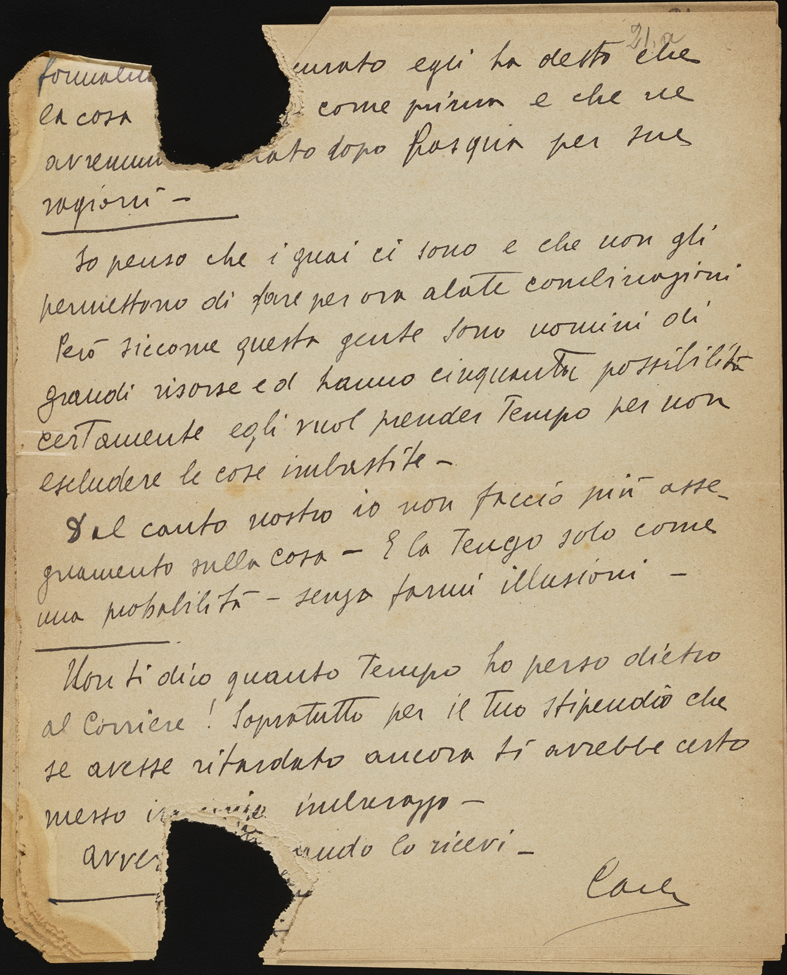 21.a
urato egli ha detto che
la cosa come prima e che ne
avremmo dopo Pasqua per sue
ragioni —
Io penso che i guai ci sono e che non gli
permettono di fare per ora alate combinazioni
Però siccome questa gente sono uomini di
grandi risorse ed hanno cinquanta possibilità
certamente egli vuol prender Tempo per non
escludere le cose imbastite —
Dal canto nostro io non faccio più asse-
gnamento sulla cosa — E la Tengo solo come
una probabilità — senza farmi illusioni —
Non ti dico quanto Tempo ho perso dietro
al Corriere! Sopratutto per il tuo stipendio che
se avesse ritardato ancora ti avrebbe certo
messo in imbarazzo —
lo ricevi —